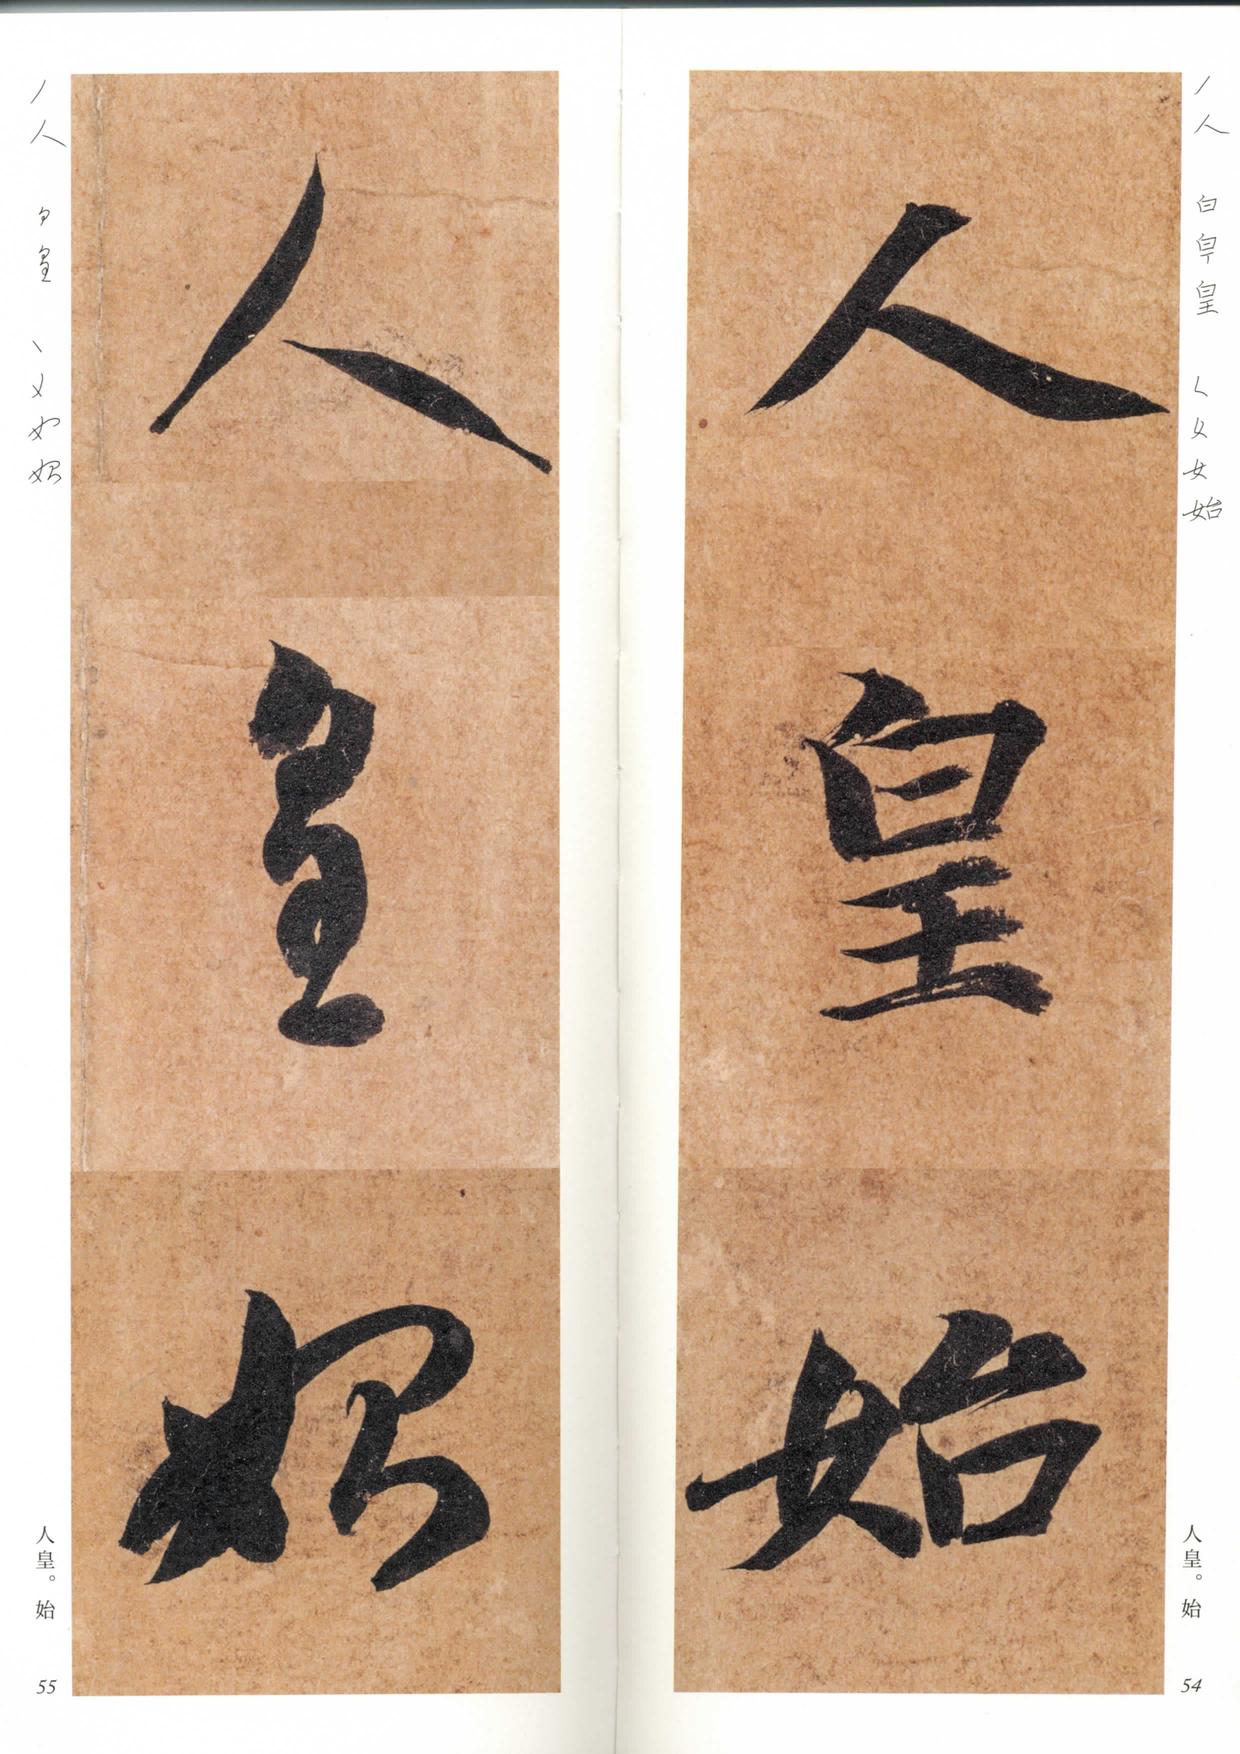 人
皇
始
人 皇。 始
54
人
皇
始
人 皇。 始
55